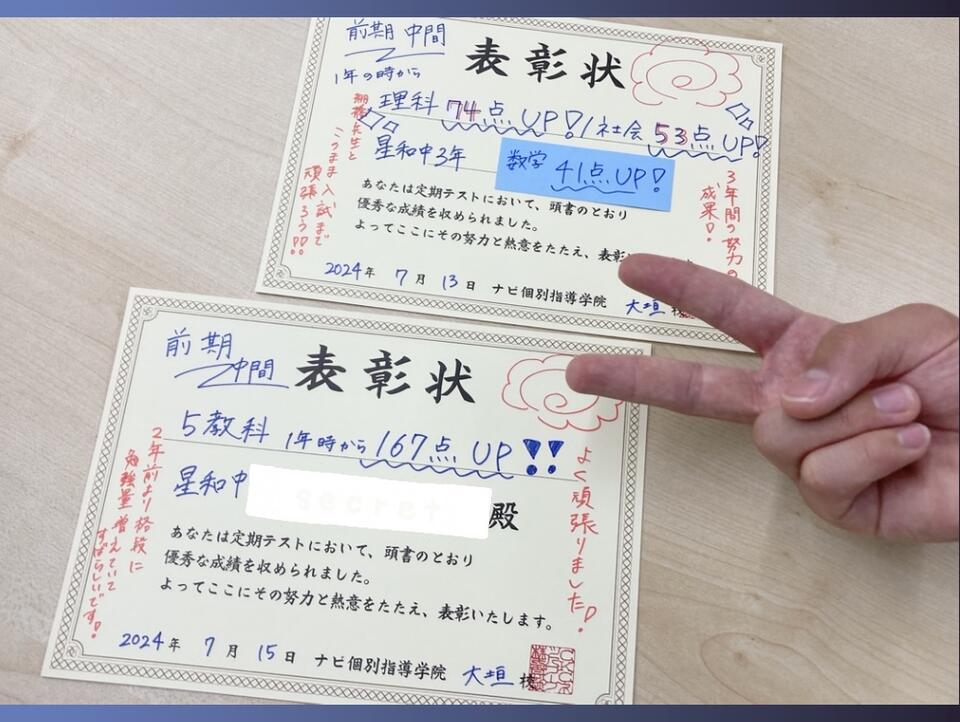 前期中間
表彰状
1年の時から
理科 74点UP!/社会 53点UP!
星和中3年
数学 41点UP!
先生と
このまま入試まで
頑張ろう!!
3年間の努力の
成果!
あなたは定期テストにおいて、頭書のとおり
優秀な成績を収められました。
よってここにその努力と熱意をたたえ、表彰
2024年 7月 13日 ナビ個別指導学院 大垣 校
前期
中間
表彰状
5教科 1年時から167点UP!!
星和中 secret 殿
2年前より格段に
勉強量増えていて
すばらしいです!
よく頑張りました!
あなたは定期テストにおいて、頭書のとおり
優秀な成績を収められました。
よってここにその努力と熱意をたたえ、表彰いたします。
2024年 7月 15日 ナビ個別指導学院 大垣 校